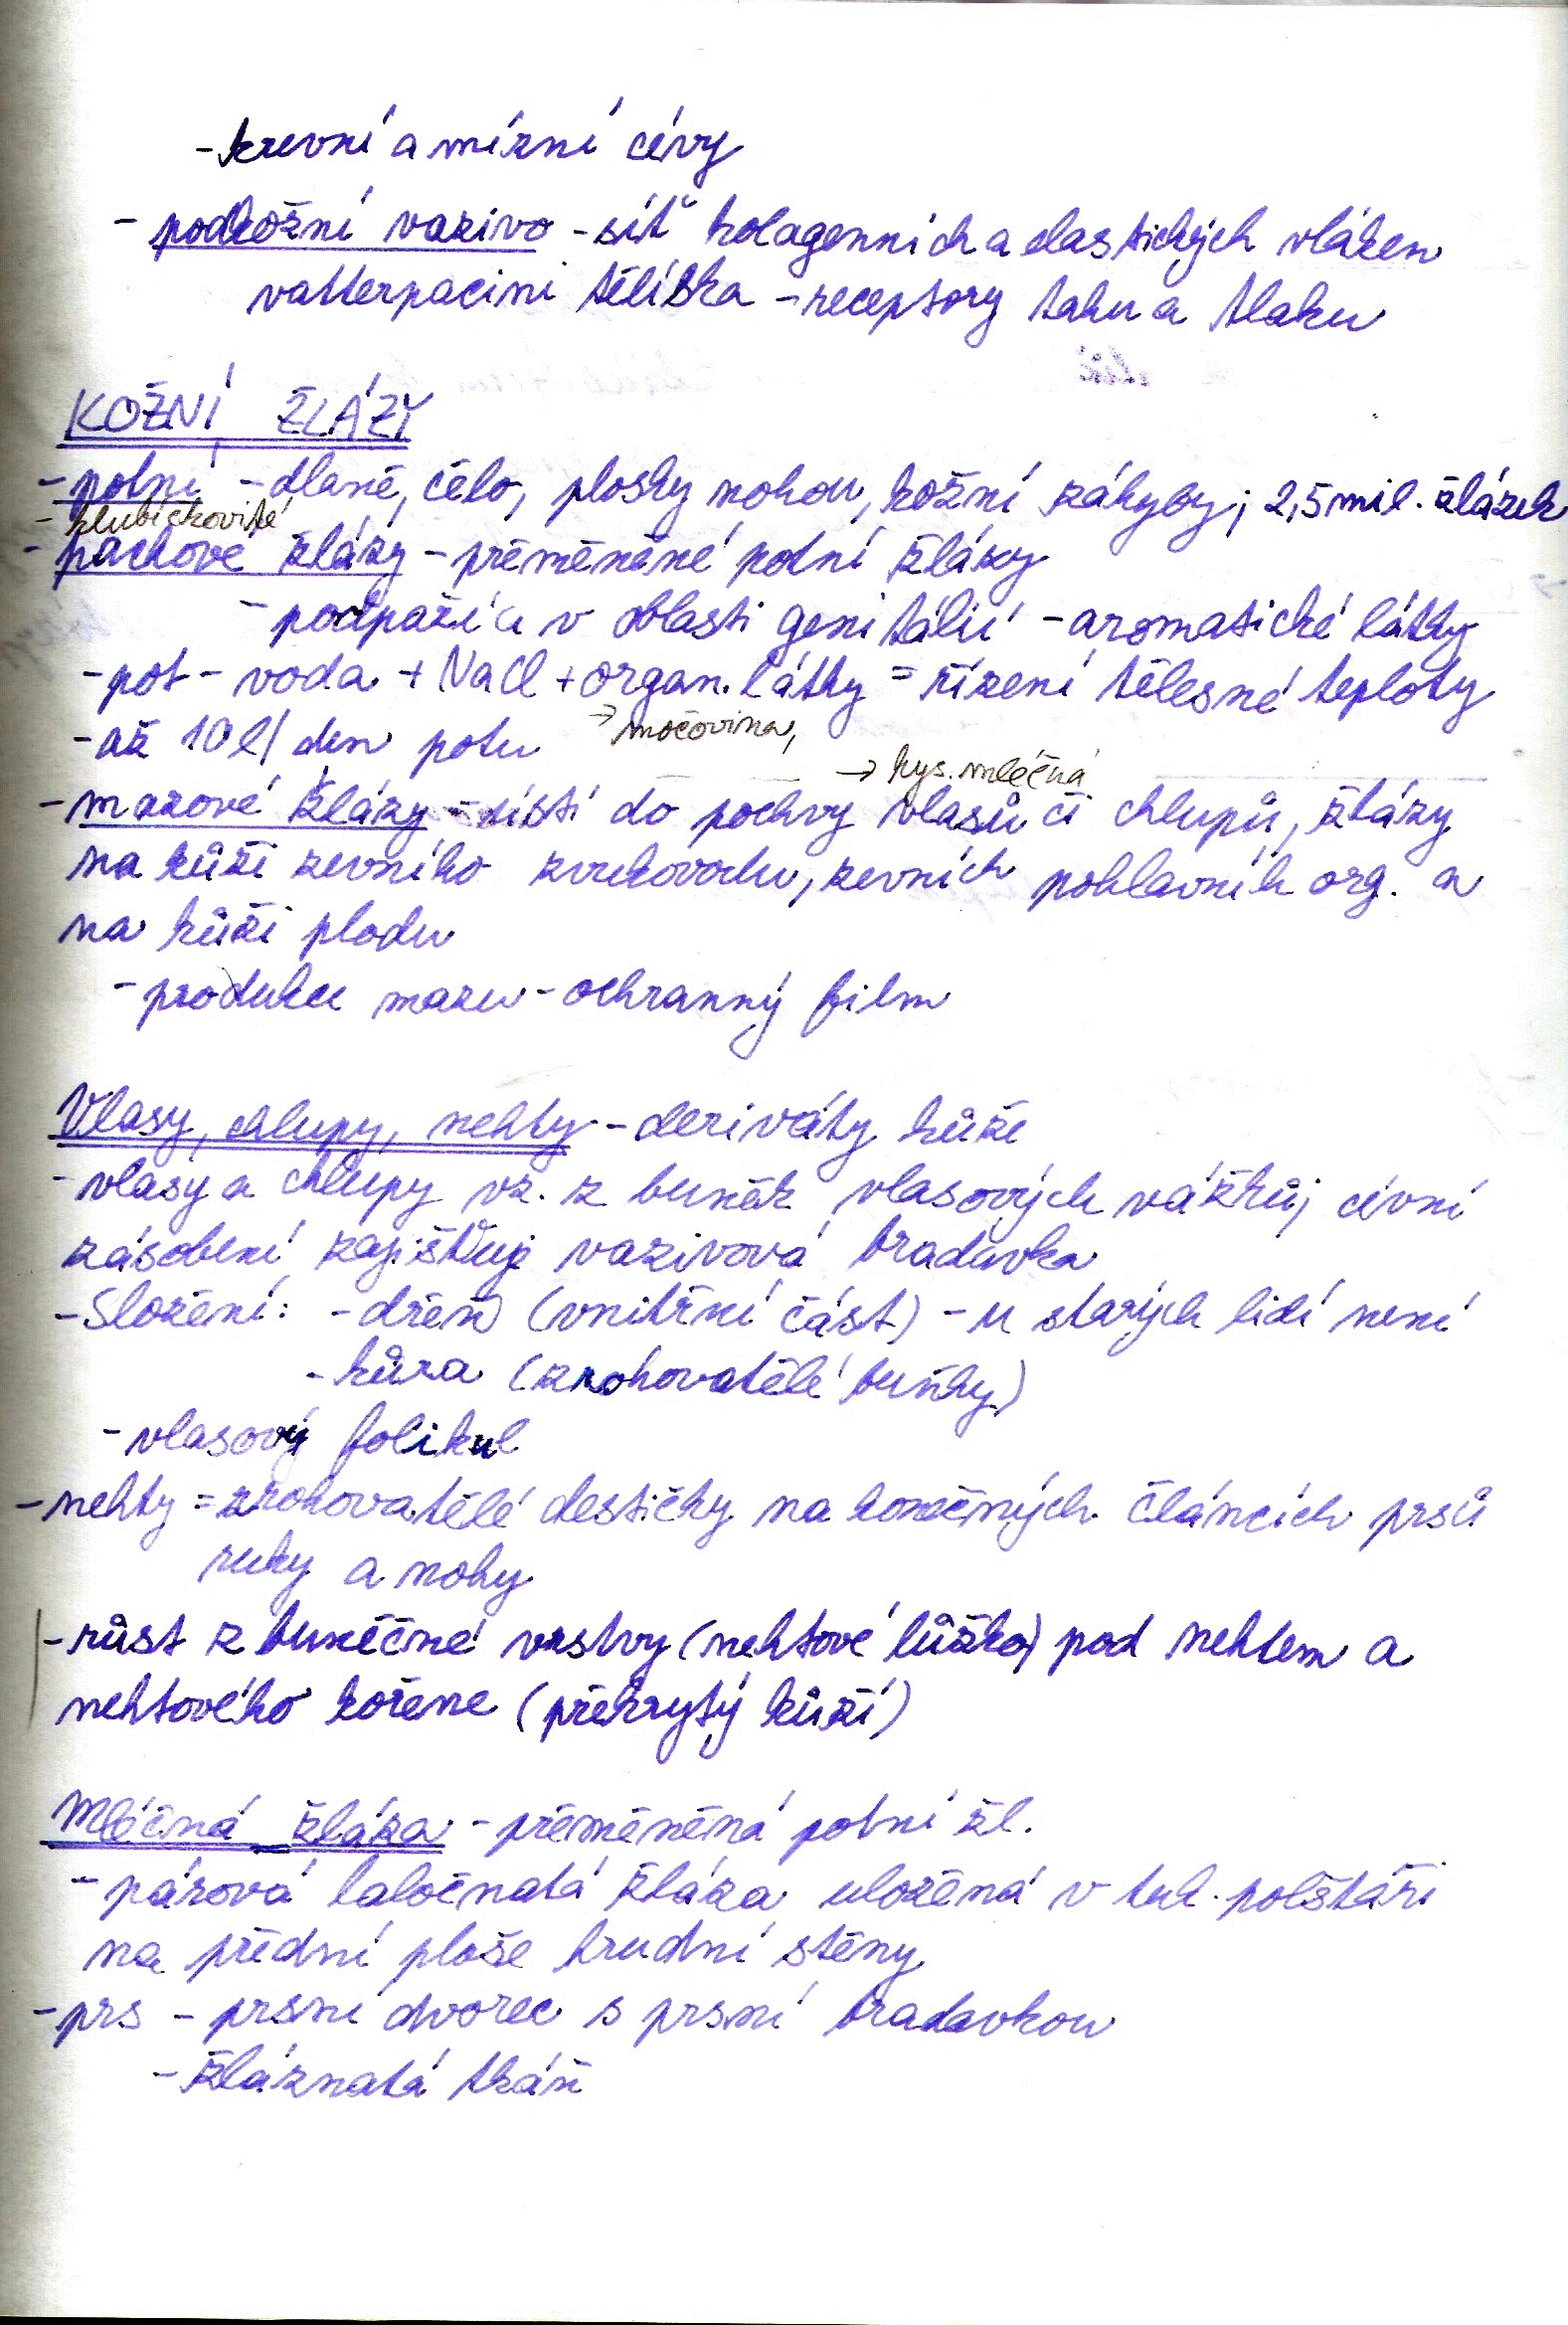 - krevní a mízní cévy
- podkožní vazivo - síť kolagenních a elastických vláken
vatterpacini tělíska - receptory tahu a tlaku
KOŽNÍ ŽLÁZY
- potní - dlaně, čelo, plosky nohou, kožní záhyby; 2,5 mil. žlázek
- klubíčkovité
- pachové žlázy - přeměněné potní žlázy
- podpaží a v oblasti genitálií - aromatické látky
- pot - voda + NaCl + organ. látky = řízení tělesné teploty
- až 10 l/den potu → močovina,
→ kys. mléčná
- mazové žlázy - ústí do pochvy vlasů či chlupů, žlázy
na kůži zevního zvukovodu, zevních pohlavních org. a
na kůži plodu
- produkce mazu - ochranný film
Vlasy, chlupy, nehty - deriváty kůže
- vlasy a chlupy vz. z buněk vlasových váčků; cévní
zásobení zajišťuje vazivová bradavka
- Složení: - dřeň (vnitřní část) - u starých lidí není
- kůra (zrohovatělé buňky)
- vlasový folikul
- nehty = zrohovatělé destičky na konečných článcích prstů
ruky a nohy
- růst z buněčné vrstvy (nehtové lůžko) pod nehtem a
nehtového kořene (překrytý kůží)
Mléčná žláza - přeměněná potní žl.
- párová laločnatá žláza uložená v tuk. polštáři
na přední ploše hrudní stěny
- prs - prsní dvorec s prsní bradavkou
- žláznatá tkáň